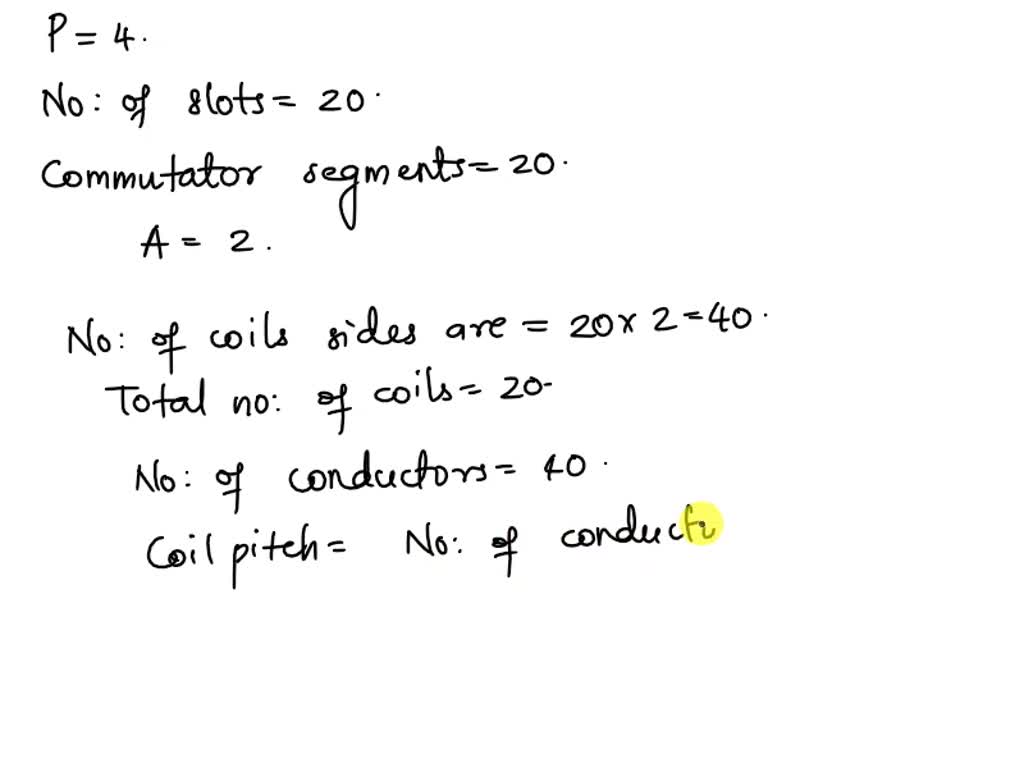 P = 4.
No: of slots = 20.
Commutator segments = 20.
A = 2.
No: of coils sides are = 20 x 2 = 40.
Total no: of coils = 20.
No: of conductors = 40.
Coil pitch = No: of